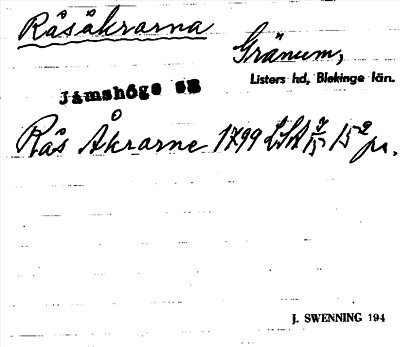 Råsåkrarna
Gränum,
Listers hd, Blekinge län.
Jämshögs sn
Rås Åkrarne 1799 LSA 15
J. SWENNING 194